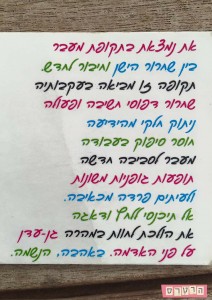 את נמצאת בתקופת מעבר
בין שחרור הישן וחיבור לחדש.
תקופה זו מביאה בעקבותיה
שחרור דפוסי חשיבה ופעולה
ניתוק חלקי מהידיעה
חוסר סיפוק בעבודה
מעבר לסביבה חדשה
תופעות גופניות משונות
ולעיתים פרדה מכאיבה.
אל תיכנסי ללחץ ודאגה
את הולכת לחוות במהרה גן-עדן
על פני האדמה. באהבה, הנשמה.